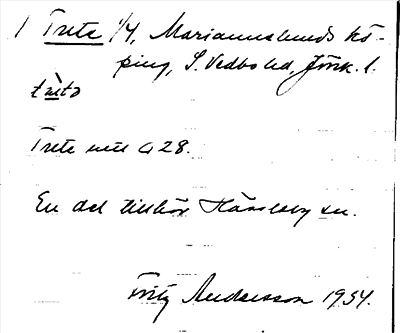 1 Trete 1/4, Mariannelunds kö-
ping, S. Vedbo hd, Jönk. l.
Trete
En del tillhör Hässleby sn.
Fritz Andersson 1954.